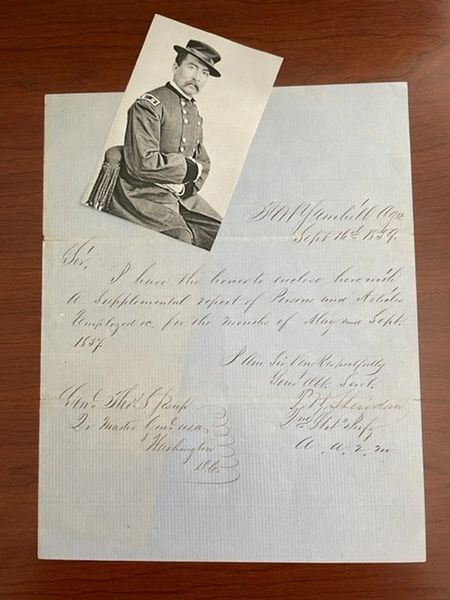 Fort Yamhill Ogn
Sept 16th 1859.
Sir,
I have the honor to enclose herewith
a Supplemental report of Persons and Articles
Employed &c. for the months of May and Sept.
1857.
I Am Sir Very Respectfully
Your Obt. Servt.
P. H. Sheridan
Genl. Tho. S Jesup
Qr Master Genl USA
Washington
A. A. Q. M